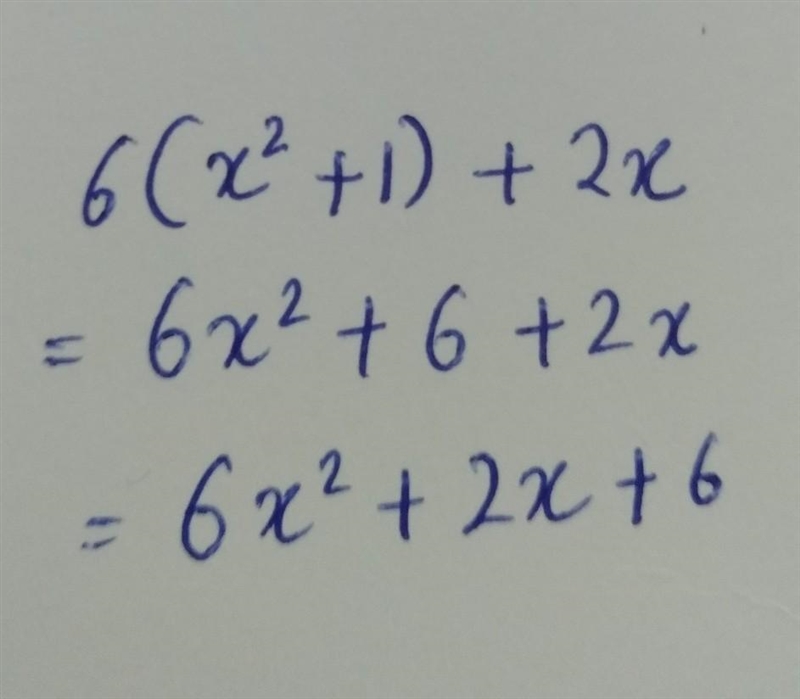 6(x² + 1) + 2x
= 6x² + 6 + 2x
= 6x² + 2x + 6